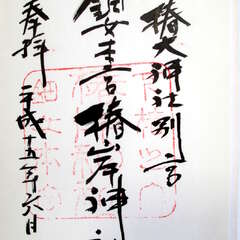 椿大神社別宮
鈿女本宮椿岸神
奉拝 平成十五年六月